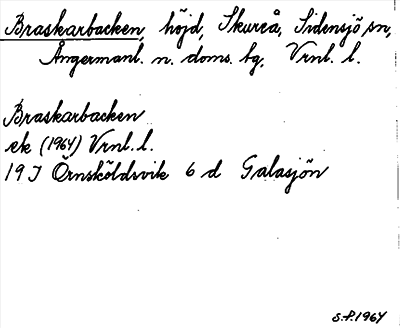 Braskarbacken, höjd, Skureå, Sidensjö sn,
Ångermanl. n. doms. bg, Vrnl. l.
Braskarbacken
ek (1964) Vrnl. l.
19 J Örnsköldsvik 6 d Galasjön
S.P. 1964